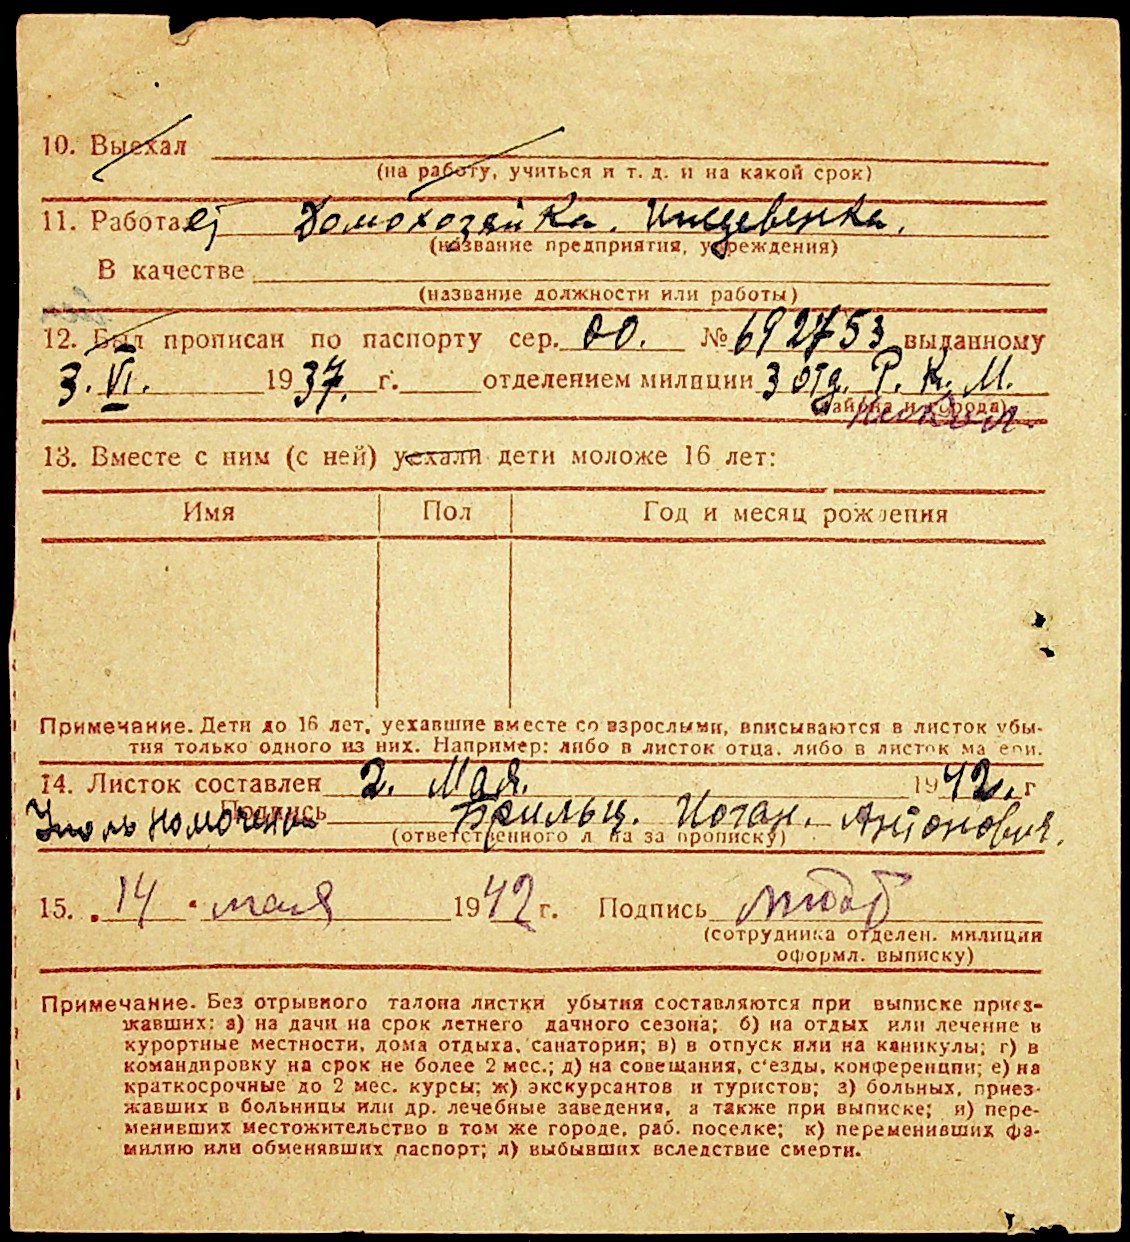 10. Выехал
(на работу, учиться и т. д. и на какой срок)
11. Работает Домохозяйка. Иждевенка.
(название предприятия, учреждения)
В качестве
(название должности или работы)
12. Был прописан по паспорту сер. №692753 выданному
3. VI. 1937. г. отделением милиции 3 отд. Р. К. М.
(района и города)
13. Вместе с ним (с ней) уехали дети моложе 16 лет:
Имя Пол Год и месяц рождения
Примечание. Дети до 16 лет, уехавшие вместе со взрослыми, вписываются в листок убы-
тия только одного из них. Например: либо в листок отца, либо в листок матери.
14. Листок составлен 2. Мая. 1942. г
Подпись Антонович.
(ответственного л на за прописку)
15. „14“ мая 1942 г. Подпись
(сотрудника отделен. милиции
оформл. выписку)
Примечание. Без отрывного талона листки убытия составляются при выписке приез-
жавших: а) на дачи на срок летнего дачного сезона; б) на отдых или лечение в
курортные местности, дома отдыха, санатория; в) в отпуск или на каникулы; г) в
командировку на срок не более 2 мес.; д) на совещания, с'езды, конференции; е) на
краткосрочные до 2 мес. курсы; ж) экскурсантов и туристов; з) больных, приез-
жавших в больницы или др. лечебные заведения, а также при выписке; и) пере-
менивших местожительство в том же городе, раб. поселке; к) переменивших фа-
милию или обменявших паспорт; л) выбывших вследствие смерти.